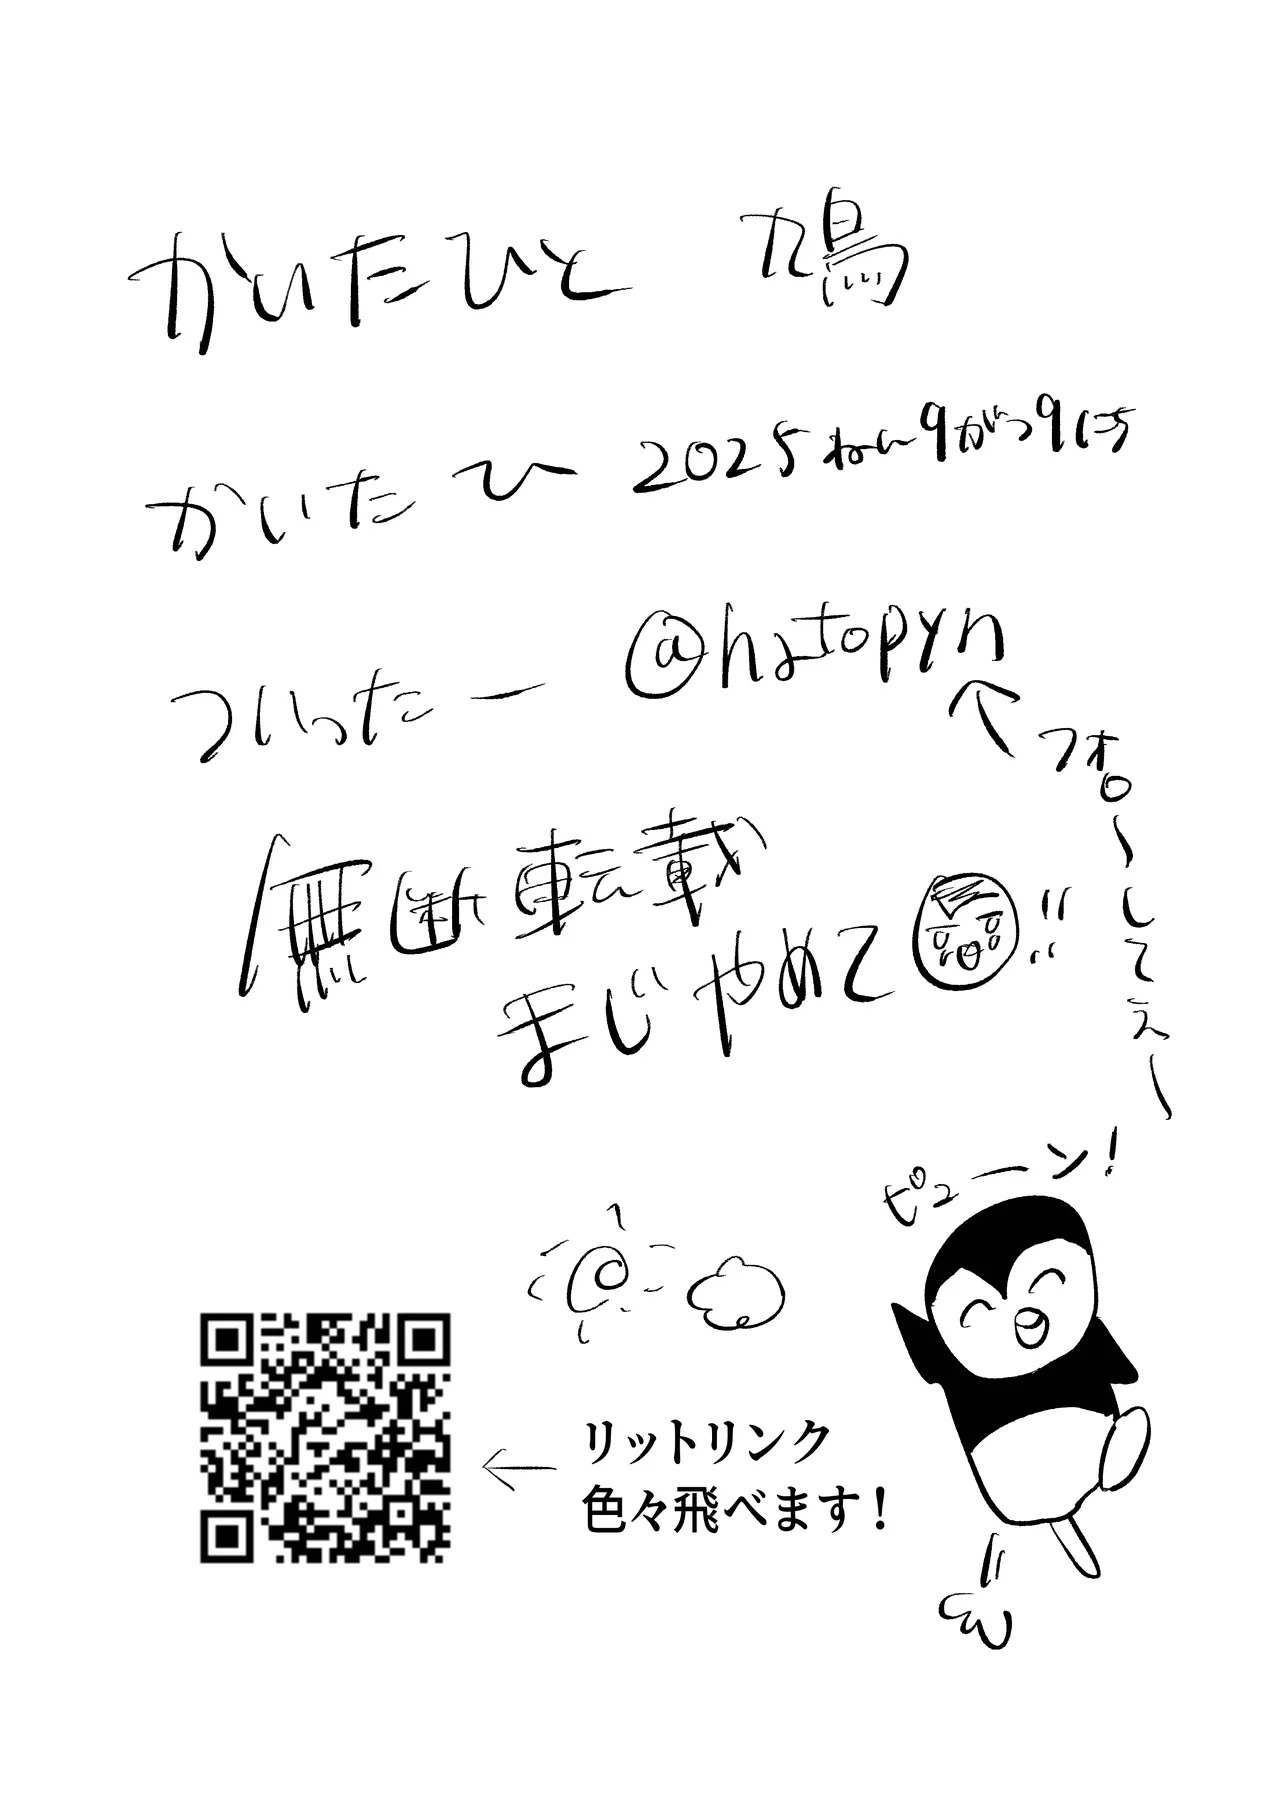 かいたひと 鳩
かいたひ 2025ねん9がつ9にち
ついったー @hatopyn
↑フォロ〜してぇ〜
無断転載
まじやめて!!
ピューン!
← リットリンク
色々飛べます!